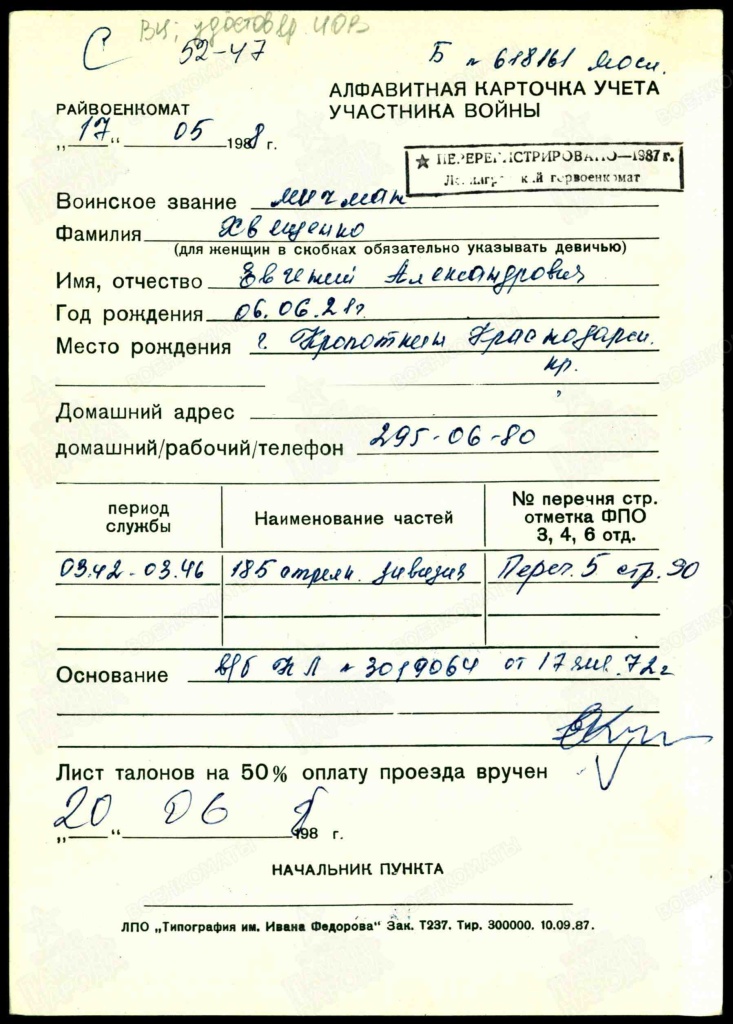 ВК; удостовер. ИОВ
С 52-47
Б № 618161 мосн.
АЛФАВИТНАЯ КАРТОЧКА УЧЕТА
УЧАСТНИКА ВОЙНЫ
РАЙВОЕНКОМАТ
„17“ 05 1988 г.
ПЕРЕРЕГИСТРИРОВАНО—1987 г.
Ленинградский горвоенкомат
Воинское звание мичман
Фамилия Хвещенко
(для женщин в скобках обязательно указывать девичью)
Имя, отчество Евгений Александрович
Год рождения 06.06.21г
Место рождения г. Кропоткин Краснодарск.
кр.
Домашний адрес
домашний/рабочий/телефон 295-06-80
период службы Наименование частей № перечня стр. отметка ФПО 3, 4, 6 отд.
03.42-03.46 185 стрелк. дивизия Переч. 5 стр. 90
Основание в/б НЛ № 3019064 от 17 72г
Лист талонов на 50% оплату проезда вручен
„20“ 06 198 г.
НАЧАЛЬНИК ПУНКТА
ЛПО „Типография им. Ивана Федорова“ Зак. Т237. Тир. 300000. 10.09.87.